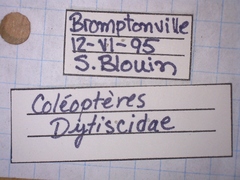 Bromptonville
12-VI-95
S. Blouin
Coléoptères
Dytiscidae